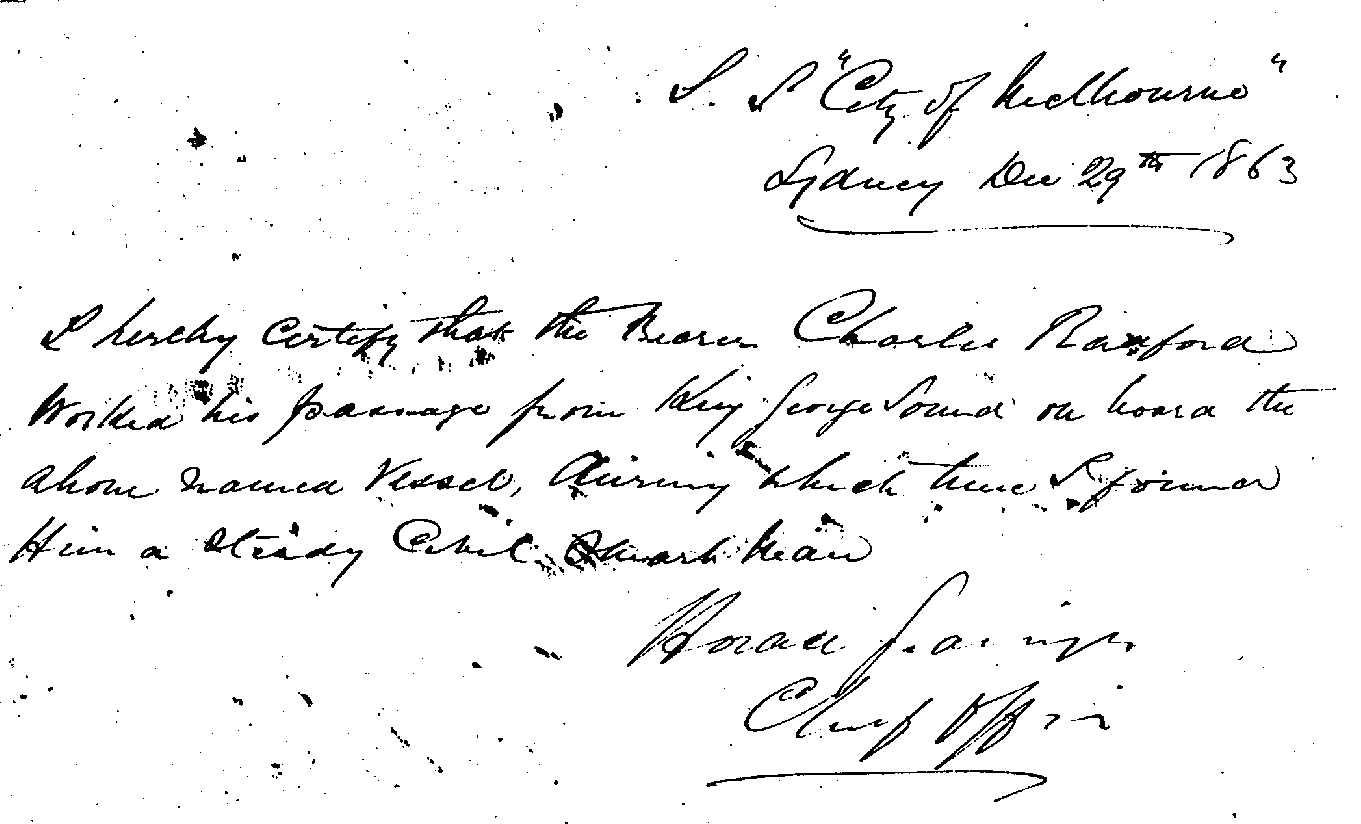 S. S "City of Melbourne"
Sydney Dec 29th 1863
I hereby Certify that the Bearer Charlie
Worked his passage from King George Sound on board the
above named Vessel, during which time I found
Him a steady Civil Smart Man
Horace
Chief Officer